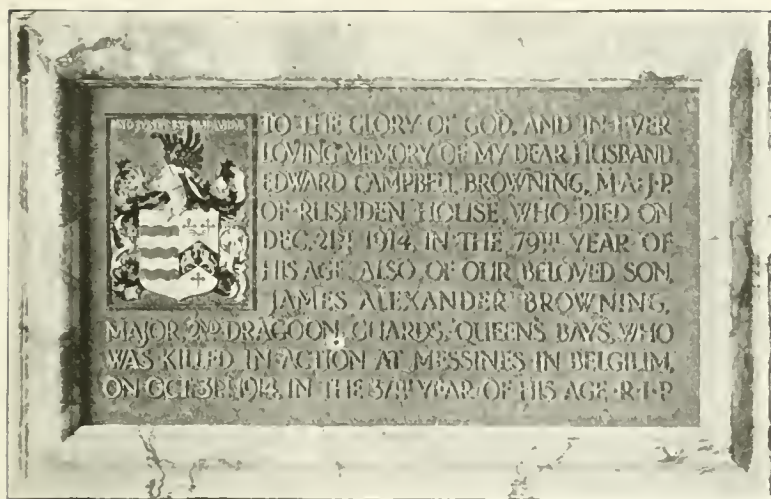 TO THE GLORY OF GOD, AND IN EVER
LOVING MEMORY OF MY DEAR HUSBAND
EDWARD CAMPBELL BROWNING, M·A: J·P.
OF RUSHDEN HOUSE, WHO DIED ON
DEC. 21ST 1914, IN THE 79TH YEAR OF
HIS AGE. ALSO, OF OUR BELOVED SON,
JAMES ALEXANDER BROWNING,
MAJOR, 2ND DRAGOON, GUARDS, QUEEN'S BAYS, WHO
WAS KILLED IN ACTION AT MESSINES IN BELGIUM,
ON OCT. 31ST, 1914, IN THE YEAR OF HIS AGE · R·I·P